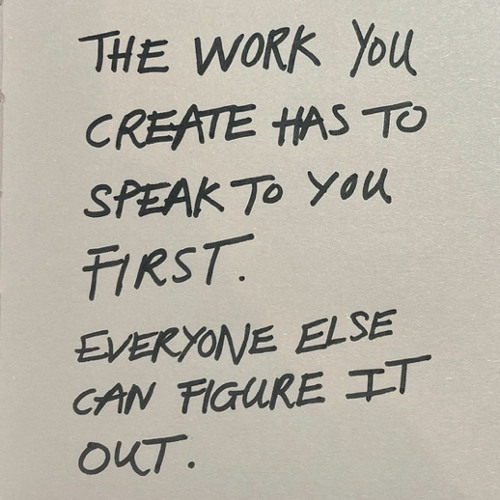 THE WORK YOU
CREATE HAS TO
SPEAK TO YOU
FIRST.
EVERYONE ELSE
CAN FIGURE IT
OUT.